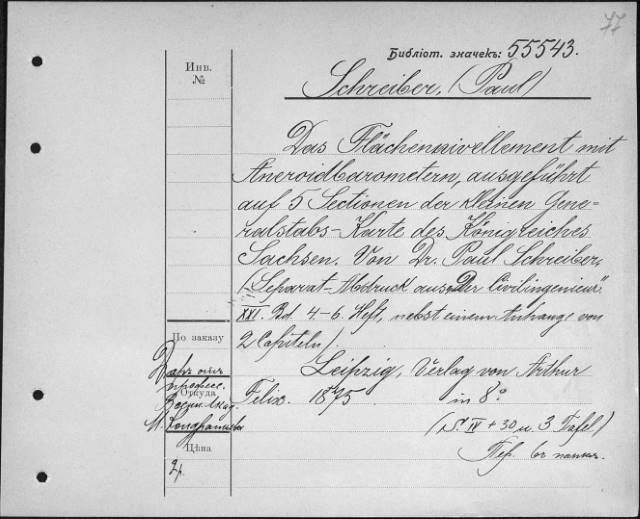 77
Библіот. значекъ: 55543.
Инв.
№
Schreiber, (Paul)
Das Flächennivellement mit
Aneroidbarometern, ausgeführt
auf 5 Sectionen der kleinen Gene-
ralstabs-Karte des Königreiches
Sachsen. Von Dr. Paul Schreiber,
(Separat-Abdruck aus „Der Civilingenieur"
XXI. Bd. 4-6. Heft, nebst einem Anhange von
2 Capiteln).
Leipzig, Verlag von Arthur
Felix. 1875 in 8°
(S. IV + 30 u. 3 Tafel)
Пер. въ папк.
По заказу
Даръ отъ
профес.
Откуда
Воен. Акад.
Цѣна
2р.